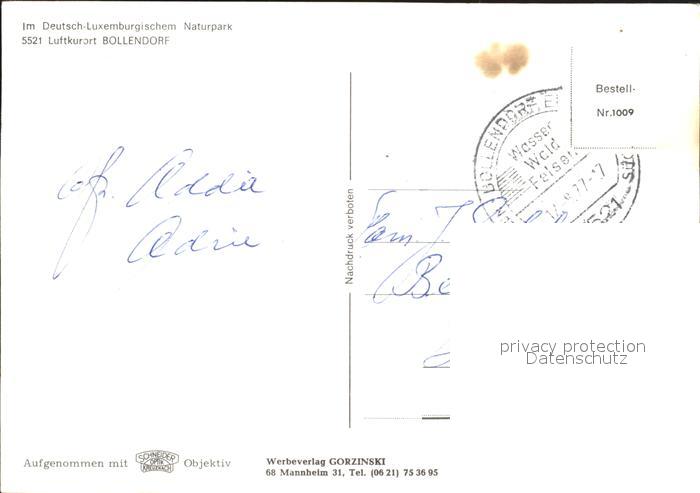 Im Deutsch-Luxemburgischem Naturpark
5521 Luftkurort BOLLENDORF
Bestell-
Nr.1009
BOLLENDORF, E
Wasser
Wald
Felsen
Addie
Adrie
Nachdruck verboten
Fam. J.
Be
privacy protection
Datenschutz
Aufgenommen mit SCHNEIDER OPTIK KREUZNACH Objektiv
Werbeverlag GORZINSKI
68 Mannheim 31, Tel. (06 21) 75 36 95